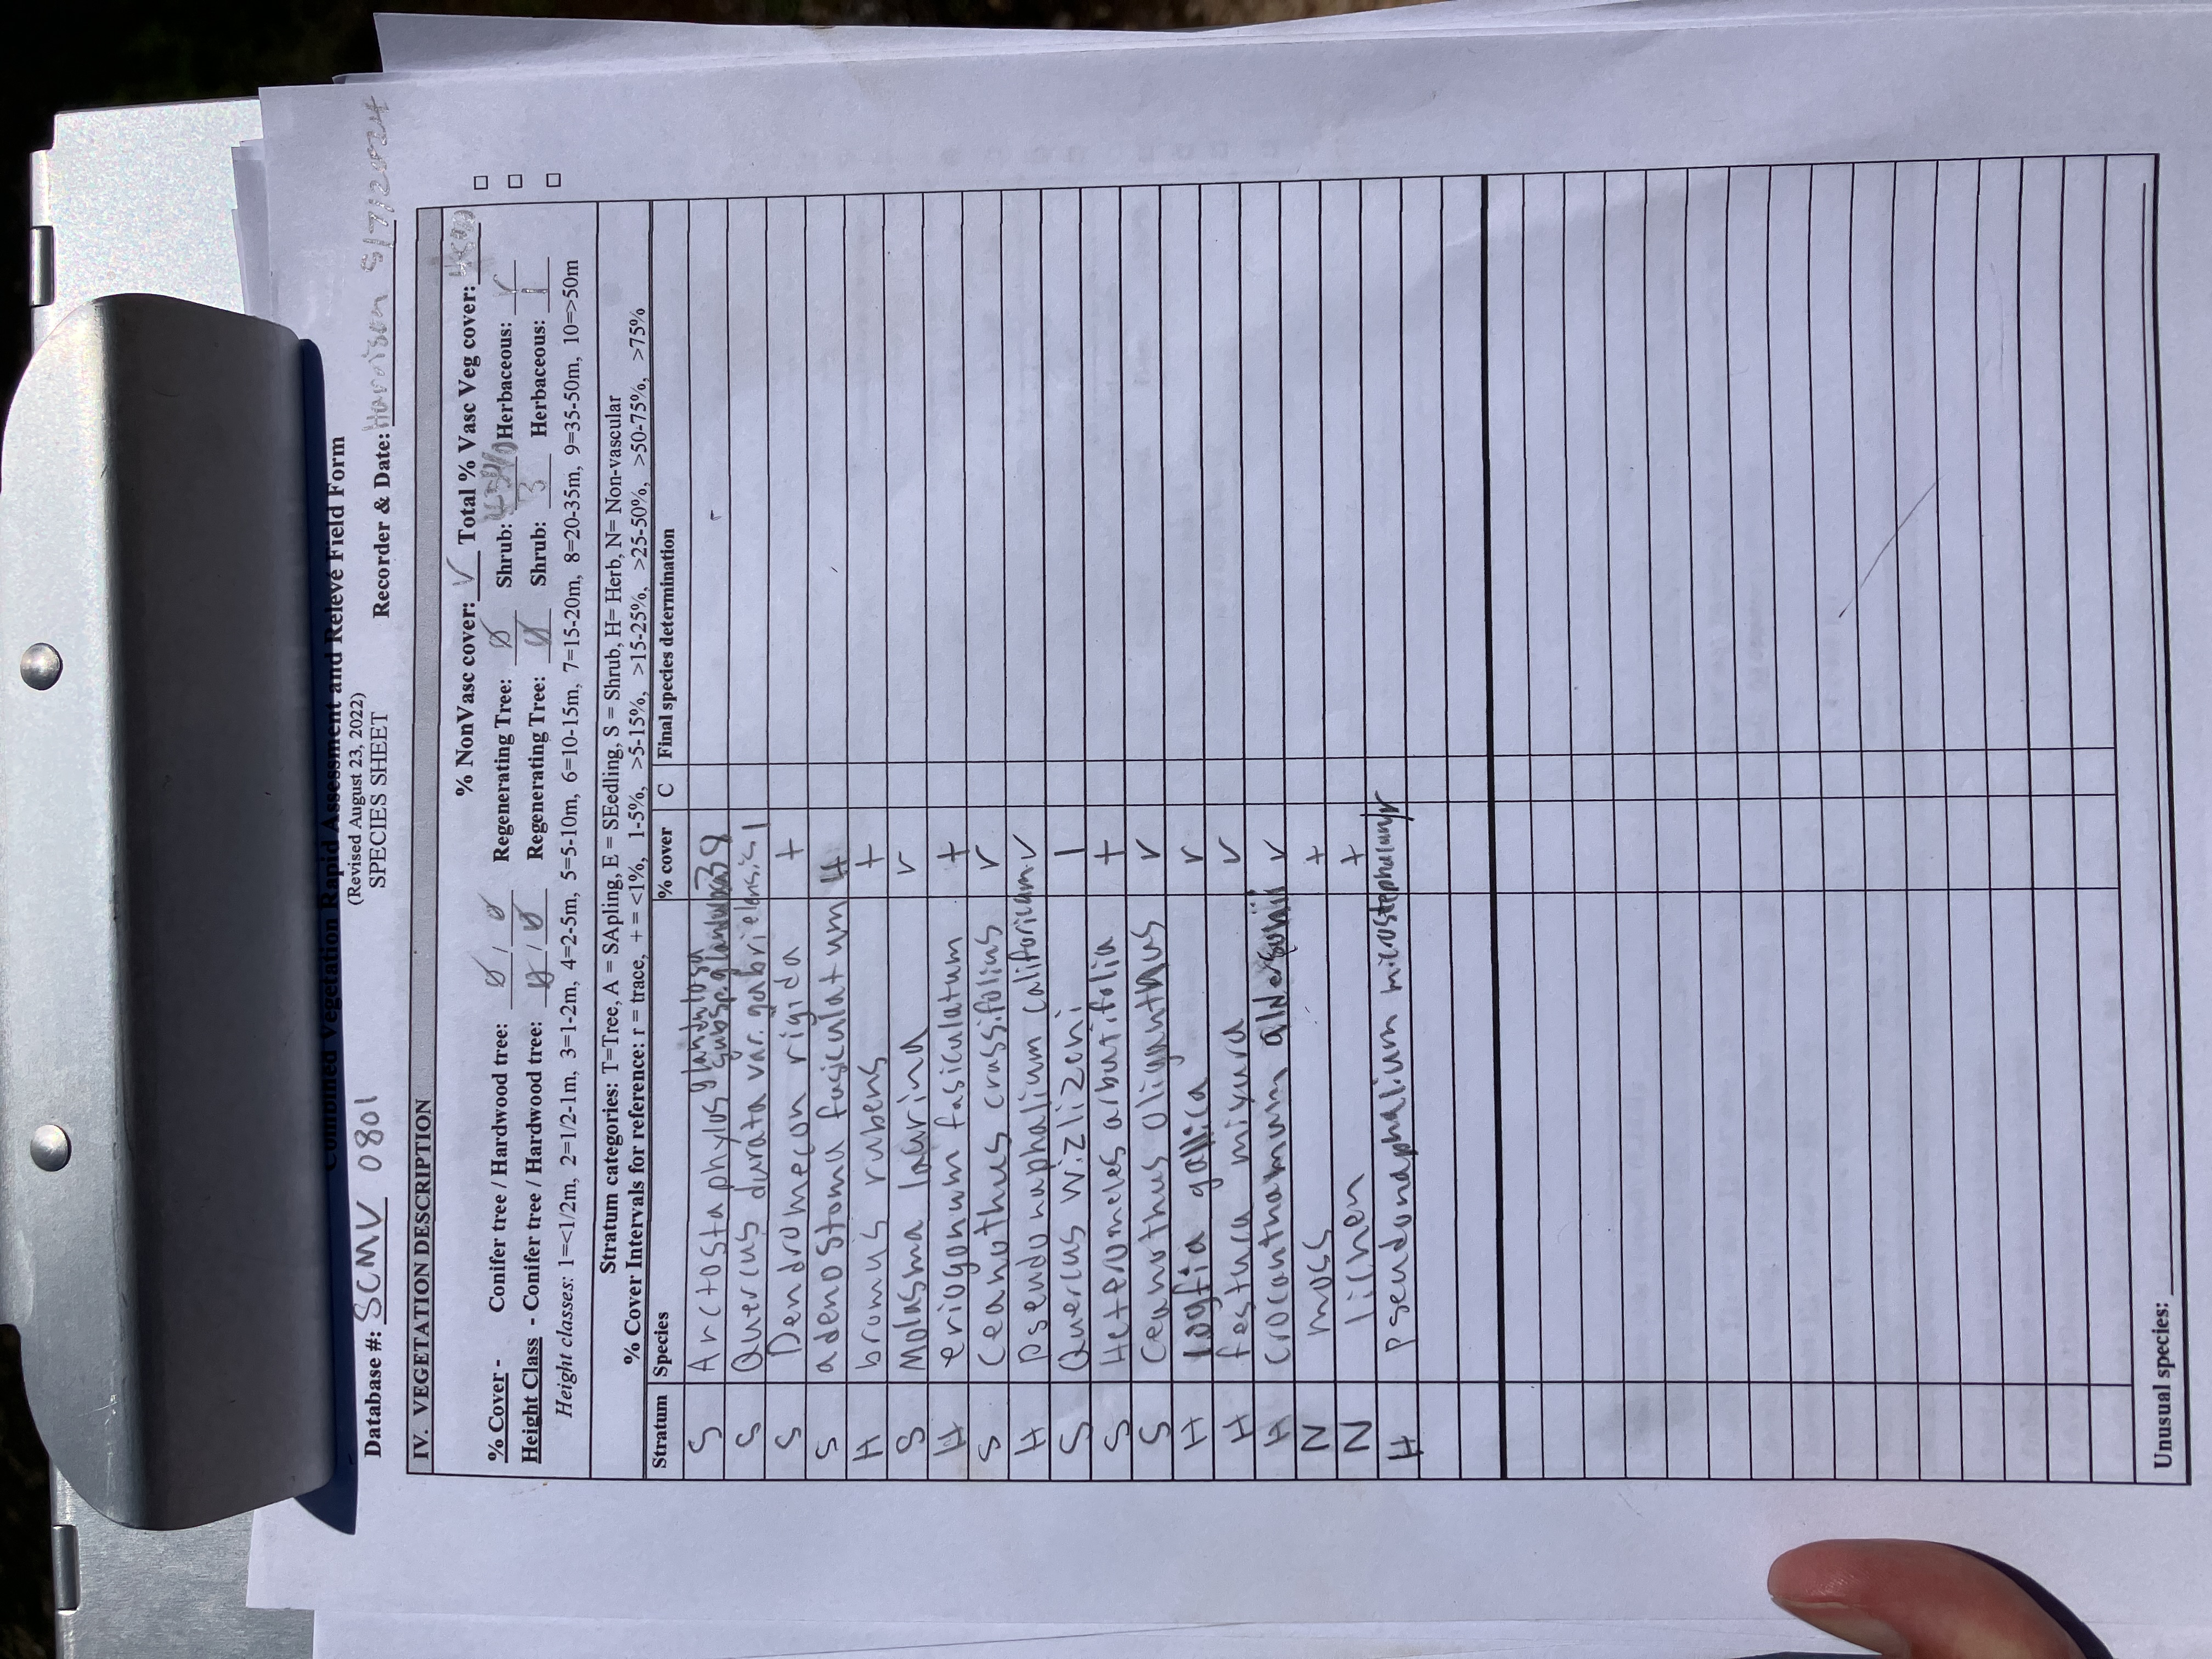 Combined Vegetation Rapid Assessment and Relevé Field Form
(Revised August 23, 2022)
SPECIES SHEET
Database #: SCMV 0801 Recorder & Date: Harrison 5/7/2024
IV. VEGETATION DESCRIPTION
% NonVasc cover: r Total % Vasc Veg cover:
% Cover - Conifer tree / Hardwood tree: Ø / Ø Regenerating Tree: Ø Shrub: Herbaceous: r
Height Class - Conifer tree / Hardwood tree: Ø / Ø Regenerating Tree: Ø Shrub: 3 Herbaceous: 1
Height classes: 1=<1/2m, 2=1/2-1m, 3=1-2m, 4=2-5m, 5=5-10m, 6=10-15m, 7=15-20m, 8=20-35m, 9=35-50m, 10=>50m
Stratum categories: T=Tree, A = SApling, E = SEedling, S = Shrub, H= Herb, N= Non-vascular
% Cover Intervals for reference: r = trace, + = <1%, 1-5%, >5-15%, >15-25%, >25-50%, >50-75%, >75%
Stratum Species % cover C Final species determination
S Arctostaphylos glandulosa subsp. 38
S Quercus durata var. gabrielensis 1
S Dendromecon rigida +
S adenostoma fasiculatum 4
H bromus rubens +
S Malosma laurina r
H eriogonum fasiculatum +
S ceanothus crassifolius r
H pseudonaphalium californicum r
S Quercus wizlizeni 1
S Heteromeles arbutifolia +
S Ceanothus oliganthus r
H logfia gallica r
H festuca mixura r
H crocanthamum r
N moss +
N lichen +
H pseudonaphalium microstephalum r
Unusual species: